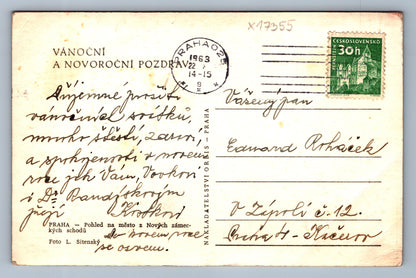 x17355
VÁNOČNÍ
A NOVOROČNÍ POZDRAV
PRAHA 025
1963
22
14-15
ČESKOSLOVENSKO
30h
Příjemné prožití
vánočních svátků,
mnoho štěstí, zdraví
a spokojenosti v novém
roce jak Vám,
i Dr.
přejí
v novém roce
se ozvem.
PRAHA — Pohled na město z Nových zámeckých schodů
Foto L. Sitenský
NAKLADATELSTVÍ ORBIS — PRAHA
Vážený pan
Edward Roháček
V Zápolí č. 12.
Praha